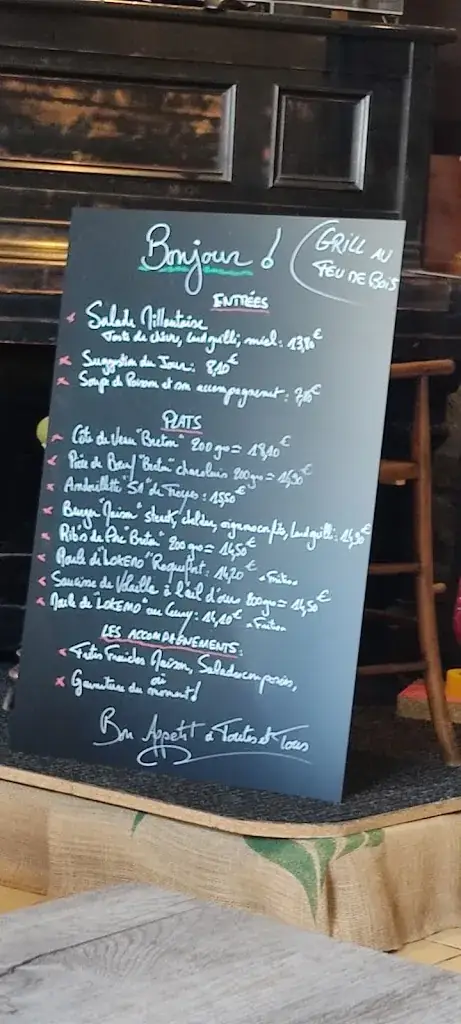 Bonjour !
GRILL AU
FEU DE BOIS
ENTRÉES
Salade
Toasts de chèvre, lard grillé, miel : 13,80€
Suggestion du Jour : 8,10€
Soupe de Poisson et son accompagnement :
PLATS
Côte de Veau "Breton" 200 grs = 18,10€
Pièce de Boeuf charolais 200grs =
Andouillette de Troyes : 15,50€
Burger steack, cheddar, oignons confits, lard grillé : 14,90€
Ribs de Porc Breton 200 grs = 14,50€
Moule de "Roquefort" : 14,20€ + Frites
Saucisse de Volaille à l'ail d'ours 200grs = 14,50€
Moule de au Curry : 14,10€ + Frites
LES ACCOMPAGNEMENTS :
Frites Fraîches Maison, Salades composées,
ou
Garniture du moment !
Bon Appétit à Toutes et Tous